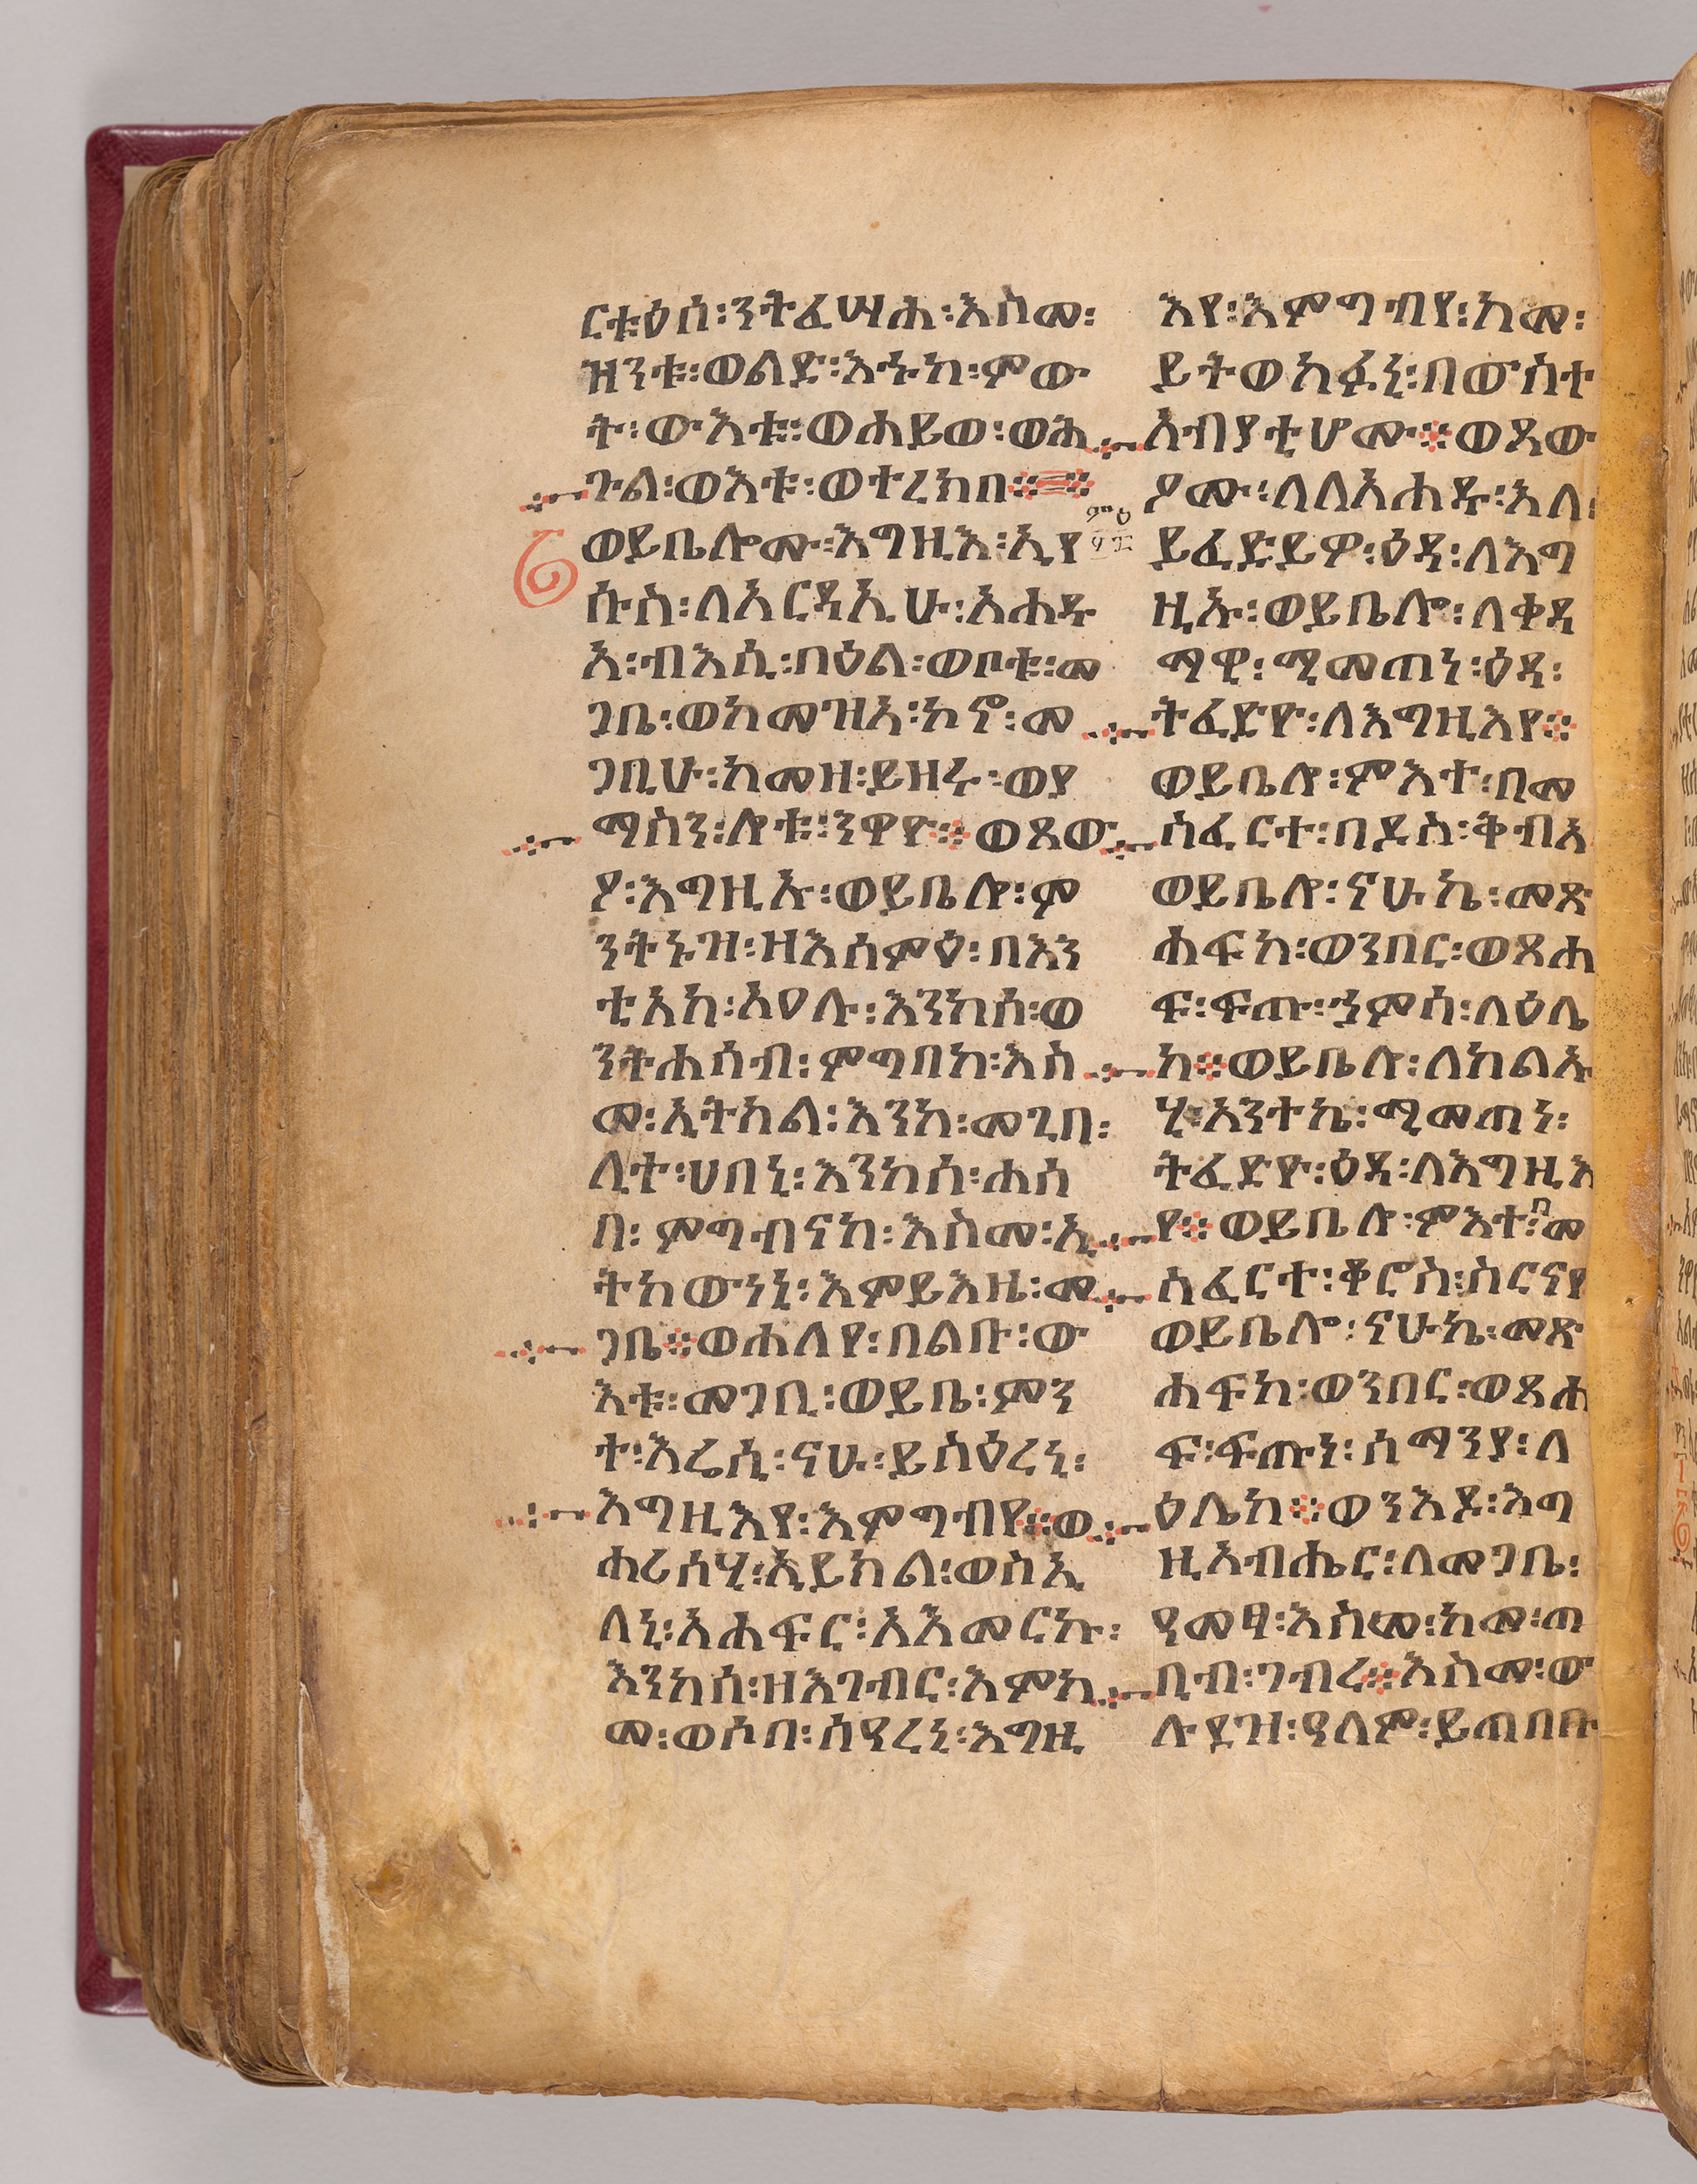 ርቱዕሰ፡ንትፈሣሕ፡እስመ፡
ዝንቱ፡ወልድ፡እኁከ፡ምው
ት፡ውእቱ፡ወሐይወ፡ወሕ
ጉል፡ወእቱ፡ወተረክበ፨
ወይቤሎሙ፡እግዚእ፡ኢየ
ሱስ፡ለአርዳኢሁ፡አሐዱ
እ፡ብእሲ፡በዕል፡ወቦቱ፡መ
ጋቤ፡ወከመዝአ፡ኮኖ፡መ
ጋቢሁ፡ከመዘ፡ይዘሩ፡ወያ
ማስን፡ሎቱ፡ንዋዮ፨ወጸው
ዖ፡እግዚኡ፡ወይቤሎ፡ም
ንትኑዝ፡ዘእሰምዕ፡በእን
ቲአከ፡አዐሉ፡እንከሰ፡ወ
ንትሐሳብ፡ምግበከ፡እስ
መ፡ኢትክል፡እንከ፡መጊበ፡
ሊተ፡ሀበኒ፡እንከሰ፡ሐሰ
በ፡ምግብናከ፡እስመ፡ኢ
ትከውነኒ፡እምይእዜ፡መ
ጋቤ፨ወሐለየ፡በልቡ፡ው
እቱ፡መጋቢ፡ወይቤ፡ምን
ተ፡እሬሲ፡ናሁ፡ይስዕረኒ፡
እግዚእየ፡እምግብየ፨ወ
ሐሪሰሂ፡ኢይክል፡ወስኢ
ለኒ፡አሐፍር፡አእመርኩ፡
እንከሰ፡ዘእገብር፡እምከ
መ፡ወሶበ፡ሰዐረኒ፡እግዚ
እየ፡እምግብየ፡ከመ፡
ይትወከፉኒ፡በውስተ
አብያቲሆሙ፨ወጸው
ዖሙ፡ለለአሐዱ፡እለ፡
ይፈድይዎ፡ዕዳ፡ለእግ
ዚኡ፡ወይቤሎ፡ለቀዳ
ማዊ፡ሚመጠነ፡ዕዳ፡
ትፈድዮ፡ለእግዚእየ፨
ወይቤሎ፡ምእተ፡በመ
ስፈርተ፡በዶስ፡ቅብአ
ወይቤሎ፡ኖሁኬ፡መጽ
ሐፍከ፡ወንበር፡ወጸሐ
ፍ፡ፍጡ፡ኃምሳ፡ለዕሌ
ከ፨ወይቤሎ፡ለካልኡ
ሂ፡አንተኬ፡ሚመጠነ፡
ትፈድዮ፡ዕዳ፡ለእግዚእ
የ፨ወይቤሎ፡ምእተ፡በመ
ስፈርተ፡ቆሮስ፡ስርናየ
ወይቤሎ፡ኖሁኬ፡መጽ
ሐፍከ፡ወንበር፡ወጸሐ
ፍ፡ፍጡነ፡ሰማንያ፡ለ
ዕሌከ፨ወንእዶ፡እግ
ዚአብሔር፡ለመጋቤ፡
ዐመፃ፡እስመ፡ከመ፡ጠ
ቢብ፡ገብረ፨እስመ፡ው
ሉደዝ፡ዓለም፡ይጠበቡ